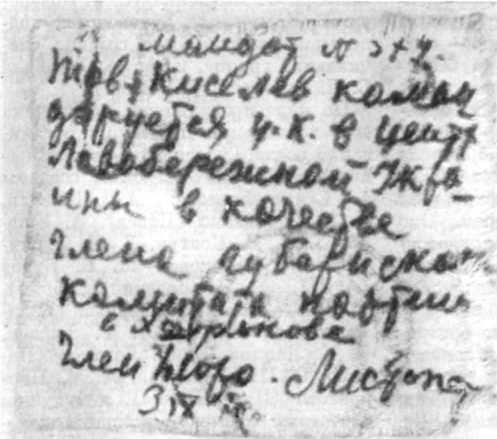 мандат №
Тов. Киселев коман
дируется Ц.К. в центр
Левобережной Укра-
ины в качестве
члена губернском
комитета партии
в Харькове
Член бюро.
3/IX